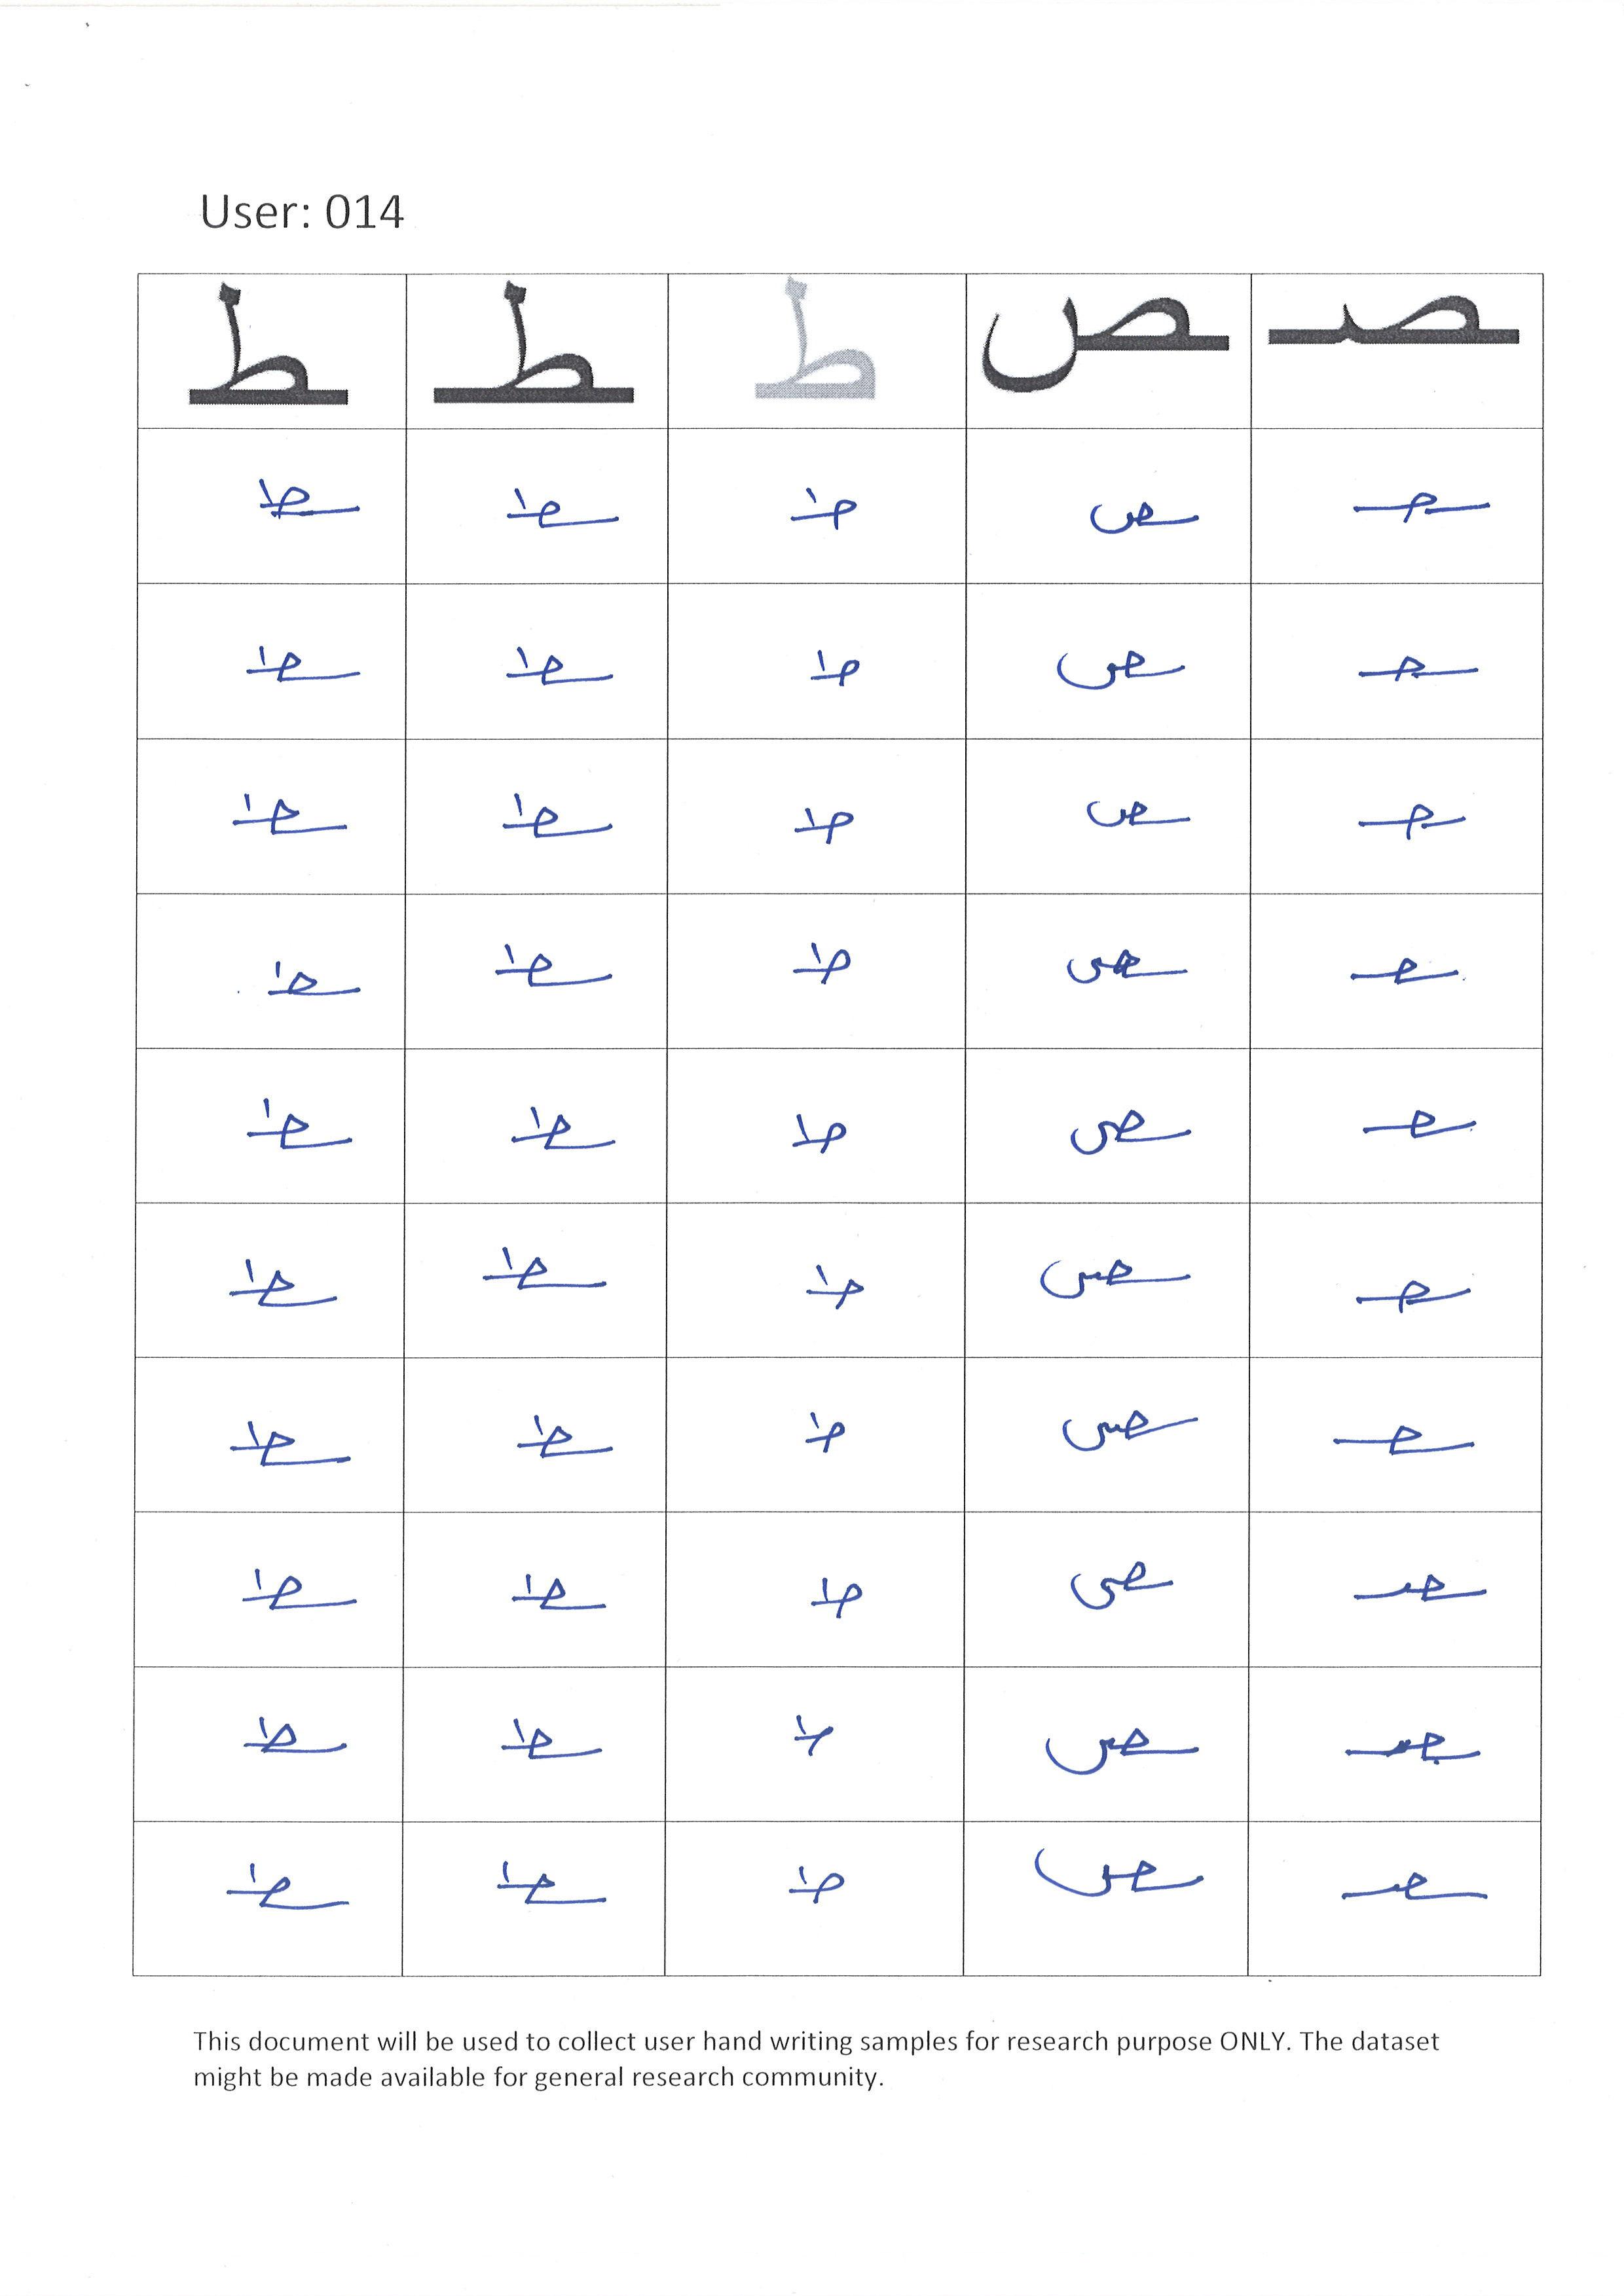 User: 014
ـصـ ـص ط ـطـ ـط
ـصـ ـص ط ـطـ ـط
ـصـ ـص ط ـطـ ـط
ـصـ ـص ط ـطـ ـط
ـصـ ـص ط ـطـ ـط
ـصـ ـص ط ـطـ ـط
ـصـ ـص ط ـطـ ـط
ـصـ ـص ط ـطـ ـط
ـصـ ـص ط ـطـ ـط
ـصـ ـص ط ـطـ ـط
ـصـ ـص ط ـطـ ـط
This document will be used to collect user hand writing samples for research purpose ONLY. The dataset
might be made available for general research community.